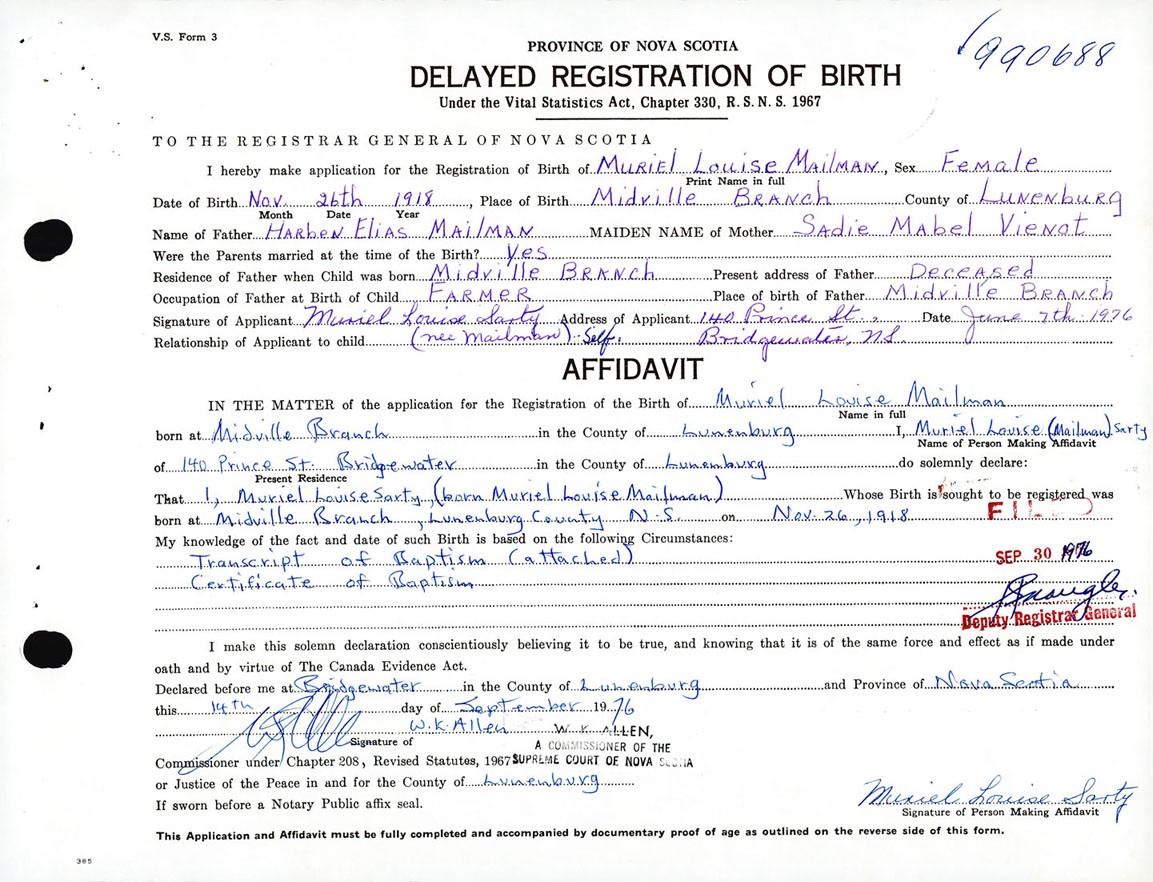 V.S. Form 3
990688
PROVINCE OF NOVA SCOTIA
DELAYED REGISTRATION OF BIRTH
Under the Vital Statistics Act, Chapter 330, R.S.N.S. 1967
TO THE REGISTRAR GENERAL OF NOVA SCOTIA
I hereby make application for the Registration of Birth of Muriel Louise Mailman, Sex Female
Print Name in full
Date of Birth Nov. 26th 1918, Place of Birth Midville Branch County of Lunenburg
Month Date Year
Name of Father Harben Elias Mailman MAIDEN NAME of Mother Sadie Mabel Vienot
Were the Parents married at the time of the Birth? Yes
Residence of Father when Child was born Midville Branch Present address of Father Deceased
Occupation of Father at Birth of Child Farmer Place of birth of Father Midville Branch
Signature of Applicant Muriel Louise Sarty Address of Applicant 140 Prince St., Date June 7th 1976
Relationship of Applicant to child (nee Mailman) Self. Bridgewater, N.S.
AFFIDAVIT
IN THE MATTER of the application for the Registration of the Birth of Muriel Louise Mailman
Name in full
born at Midville Branch in the County of Lunenburg I, Muriel Louise (Mailman) Sarty
Name of Person Making Affidavit
of 140 Prince St. Bridgewater in the County of Lunenburg do solemnly declare:
Present Residence
That I, Muriel Louise Sarty, (born Muriel Louise Mailman) Whose Birth is sought to be registered was
born at Midville Branch, Lunenburg County N.S. on Nov. 26, 1918
FILED
My knowledge of the fact and date of such Birth is based on the following Circumstances:
Transcript of Baptism (attached)
SEP 30 1976
Certificate of Baptism
Deputy Registrar General
I make this solemn declaration conscientiously believing it to be true, and knowing that it is of the same force and effect as if made under
oath and by virtue of The Canada Evidence Act.
Declared before me at Bridgewater in the County of Lunenburg and Province of Nova Scotia
this 14th day of September 1976
W.K. Allen W. K. ALLEN,
Signature of A COMMISSIONER OF THE
Commissioner under Chapter 208, Revised Statutes, 1967 SUPREME COURT OF NOVA SCOTIA
or Justice of the Peace in and for the County of Lunenburg
If sworn before a Notary Public affix seal.
Muriel Louise Sarty
Signature of Person Making Affidavit
This Application and Affidavit must be fully completed and accompanied by documentary proof of age as outlined on the reverse side of this form.
385